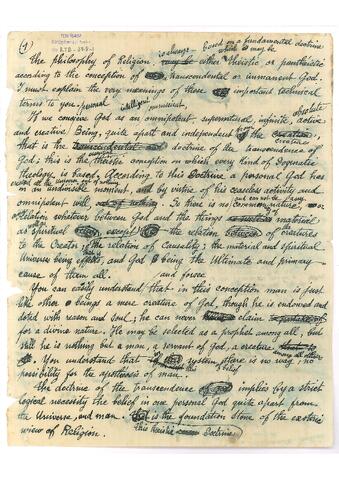 (1)
is always based on a fundamental doctrine
which may be
The philosophy of Religion, either Theistic or pantheistic
according to the conception of transcendental or immanent God.
I must explain the very meanings of these important technical
terms to you. personal intelligent omniscient,
If we conceive God as an omnipotent, supernatural, infinite, absolute active
and creative Being, quite apart and independent from the creature,
that is the doctrine of the transcendence of
God; this is the theistic conception on which every kind of Dogmatic
Theology is based. According to this Doctrine a personal God has
created all the universe, out of
in an indivisible moment, and by virtue of his ceaseless activity and
omnipotent will, So there is no and can not be any common nature or
relation whatever between God and the things material
as spiritual except the relation of creatures
to the Creator, the relation of Causality; the material and spiritual
Universe being effects, and God being the Ultimate and primary
cause of them all. and forces
You can easily understand that in this conception man is just
like other beings a mere creature of God, though he is endowed and
doted with reason and soul; he can never claim
for a divine nature. He may be selected as a prophet among all, but
still he is nothing but a man, a servant of God, a creature among all others
You understand that in this system of belief there is no way, no
possibility for the apotheosis of man.
The doctrine of the transcendence implies by a strict
logical necessity the belief in one personal God quite apart from
the Universe, and man. is the foundation stone of the exoteric
view of Religion. This theistic Doctrine